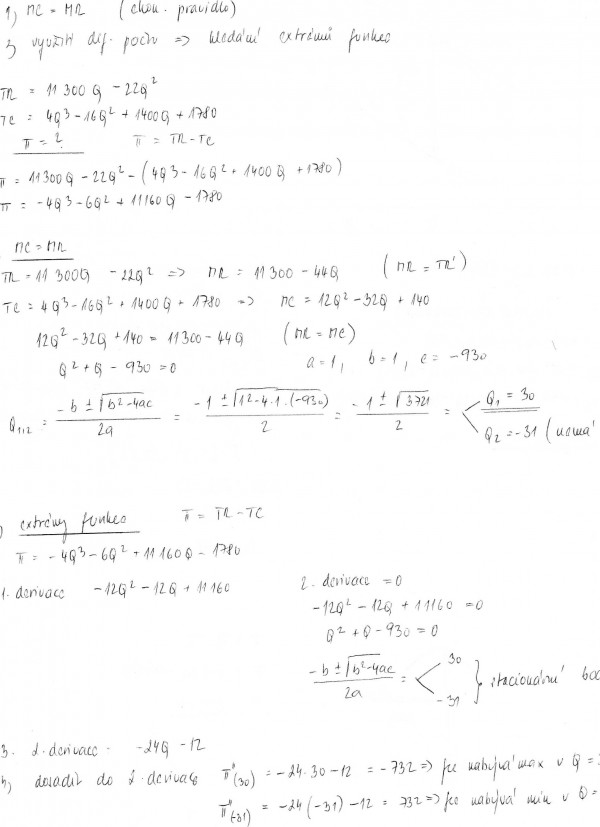 1) MC = MR (ekon. pravidlo)
2) využití dif. počtu => hledání extrémů funkce
TR = 11 300Q - 22Q²
TC = 4Q³ - 16Q² + 1400Q + 1780
π = ? π = TR - TC
π = 11300Q - 22Q² - (4Q³ - 16Q² + 1400Q + 1780)
π = -4Q³ - 6Q² + 11160Q - 1780
MC = MR
TR = 11 300Q - 22Q² => MR = 11 300 - 44Q (MR = TR')
TC = 4Q³ - 16Q² + 1400Q + 1780 => MC = 12Q² - 32Q + 140
12Q² - 32Q + 140 = 11300 - 44Q (MR = MC)
Q² + Q - 930 = 0 a = 1, b = 1, c = -930
Q₁,₂ = (-b ± √(b² - 4ac))/2a = (-1 ± √(1² - 4·1·(-930)))/2 = (-1 ± √3721)/2 = < Q₁ = 30
Q₂ = -31 (nemá
) extrémy funkce π = TR - TC
π = -4Q³ - 6Q² + 11160Q - 1780
1. derivace -12Q² - 12Q + 11160 2. derivace = 0
-12Q² - 12Q + 11160 = 0
Q² + Q - 930 = 0
(-b ± √(b² - 4ac))/2a = < 30
-31 } stacionární bod
3. 2. derivace -24Q - 12
4) dosadit do 2. derivace π''(30) = -24·30 - 12 = -732 => fce nabývá max v Q =
π''(-31) = -24(-31) - 12 = 732 => fce nabývá min v Q =